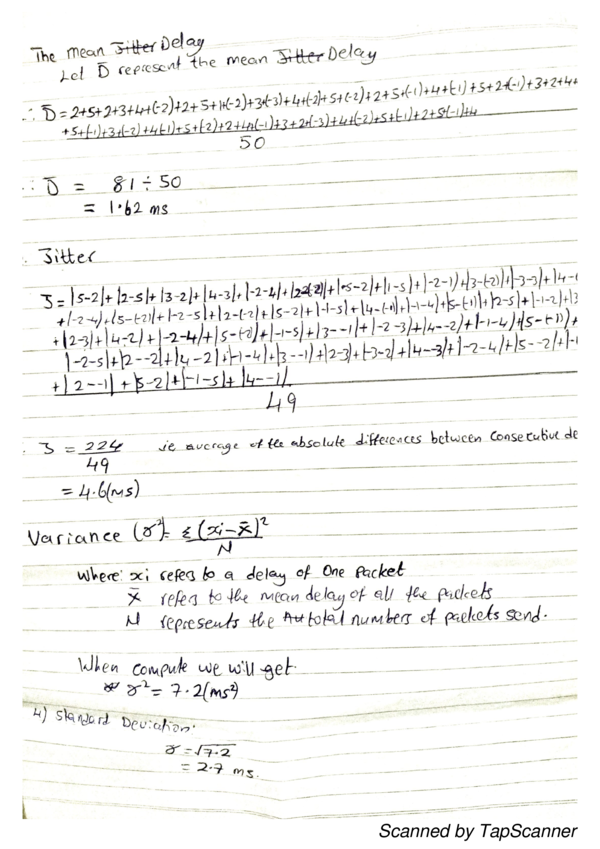 The mean Jitter Delay
Let D̄ represent the mean Jitter Delay
∴ D̄ = 2+5+2+3+4+(-2)+2+5+1+(-2)+3+(-3)+4+(-2)+5+(-2)+2+5+(-1)+4+(-1)+5+2+(-1)+3+2+4+
+5+(-1)+3+(-2)+4(-1)+5+(-2)+2+4+(-1)+3+2+(-3)+4+(-2)+5+(-1)+2+5+(-1)+4
50
∴ D̄ = 81 ÷ 50
= 1.62 ms
Jitter
J = |5-2|+|2-5|+|3-2|+|4-3|+|-2-4|+|2-(-2)|+|5-2|+|1-5|+|-2-1|+|3-(-2)|+|-3-3|+|4-
+|-2-4|+|5-(-2)|+|-2-5|+|2-(-2)|+|5-2|+|-1-5|+|4-(-1)|+|-1-4|+|5-(-1)|+|2-5|+|-1-2|+|3
+|2-3|+|4-2|+|-2-4|+|5-(-2)|+|-1-5|+|3--1|+|-2-3|+|4--2|+|-1-4|+|5-(-1)|+
|-2-5|+|2--2|+|4-2|+|-1-4|+|3--1|+|2-3|+|-3-2|+|4--3|+|-2-4|+|5--2|+|-1
+|2--1|+|5-2|+|-1-5|+|4--1|
49
J = 224 ie average of the absolute differences between Consecutive de
49
= 4.6(ms)
Variance (σ²) = Σ(xi-x̄)²
N
Where: xi refers to a delay of One Packet
x̄ refers to the mean delay of all the packets
N represents the total numbers of packets send.
When compute we will get.
σ² = 7.2(ms²)
4) Standard Deviation.
σ = √7.2
= 2.7 ms.
Scanned by TapScanner